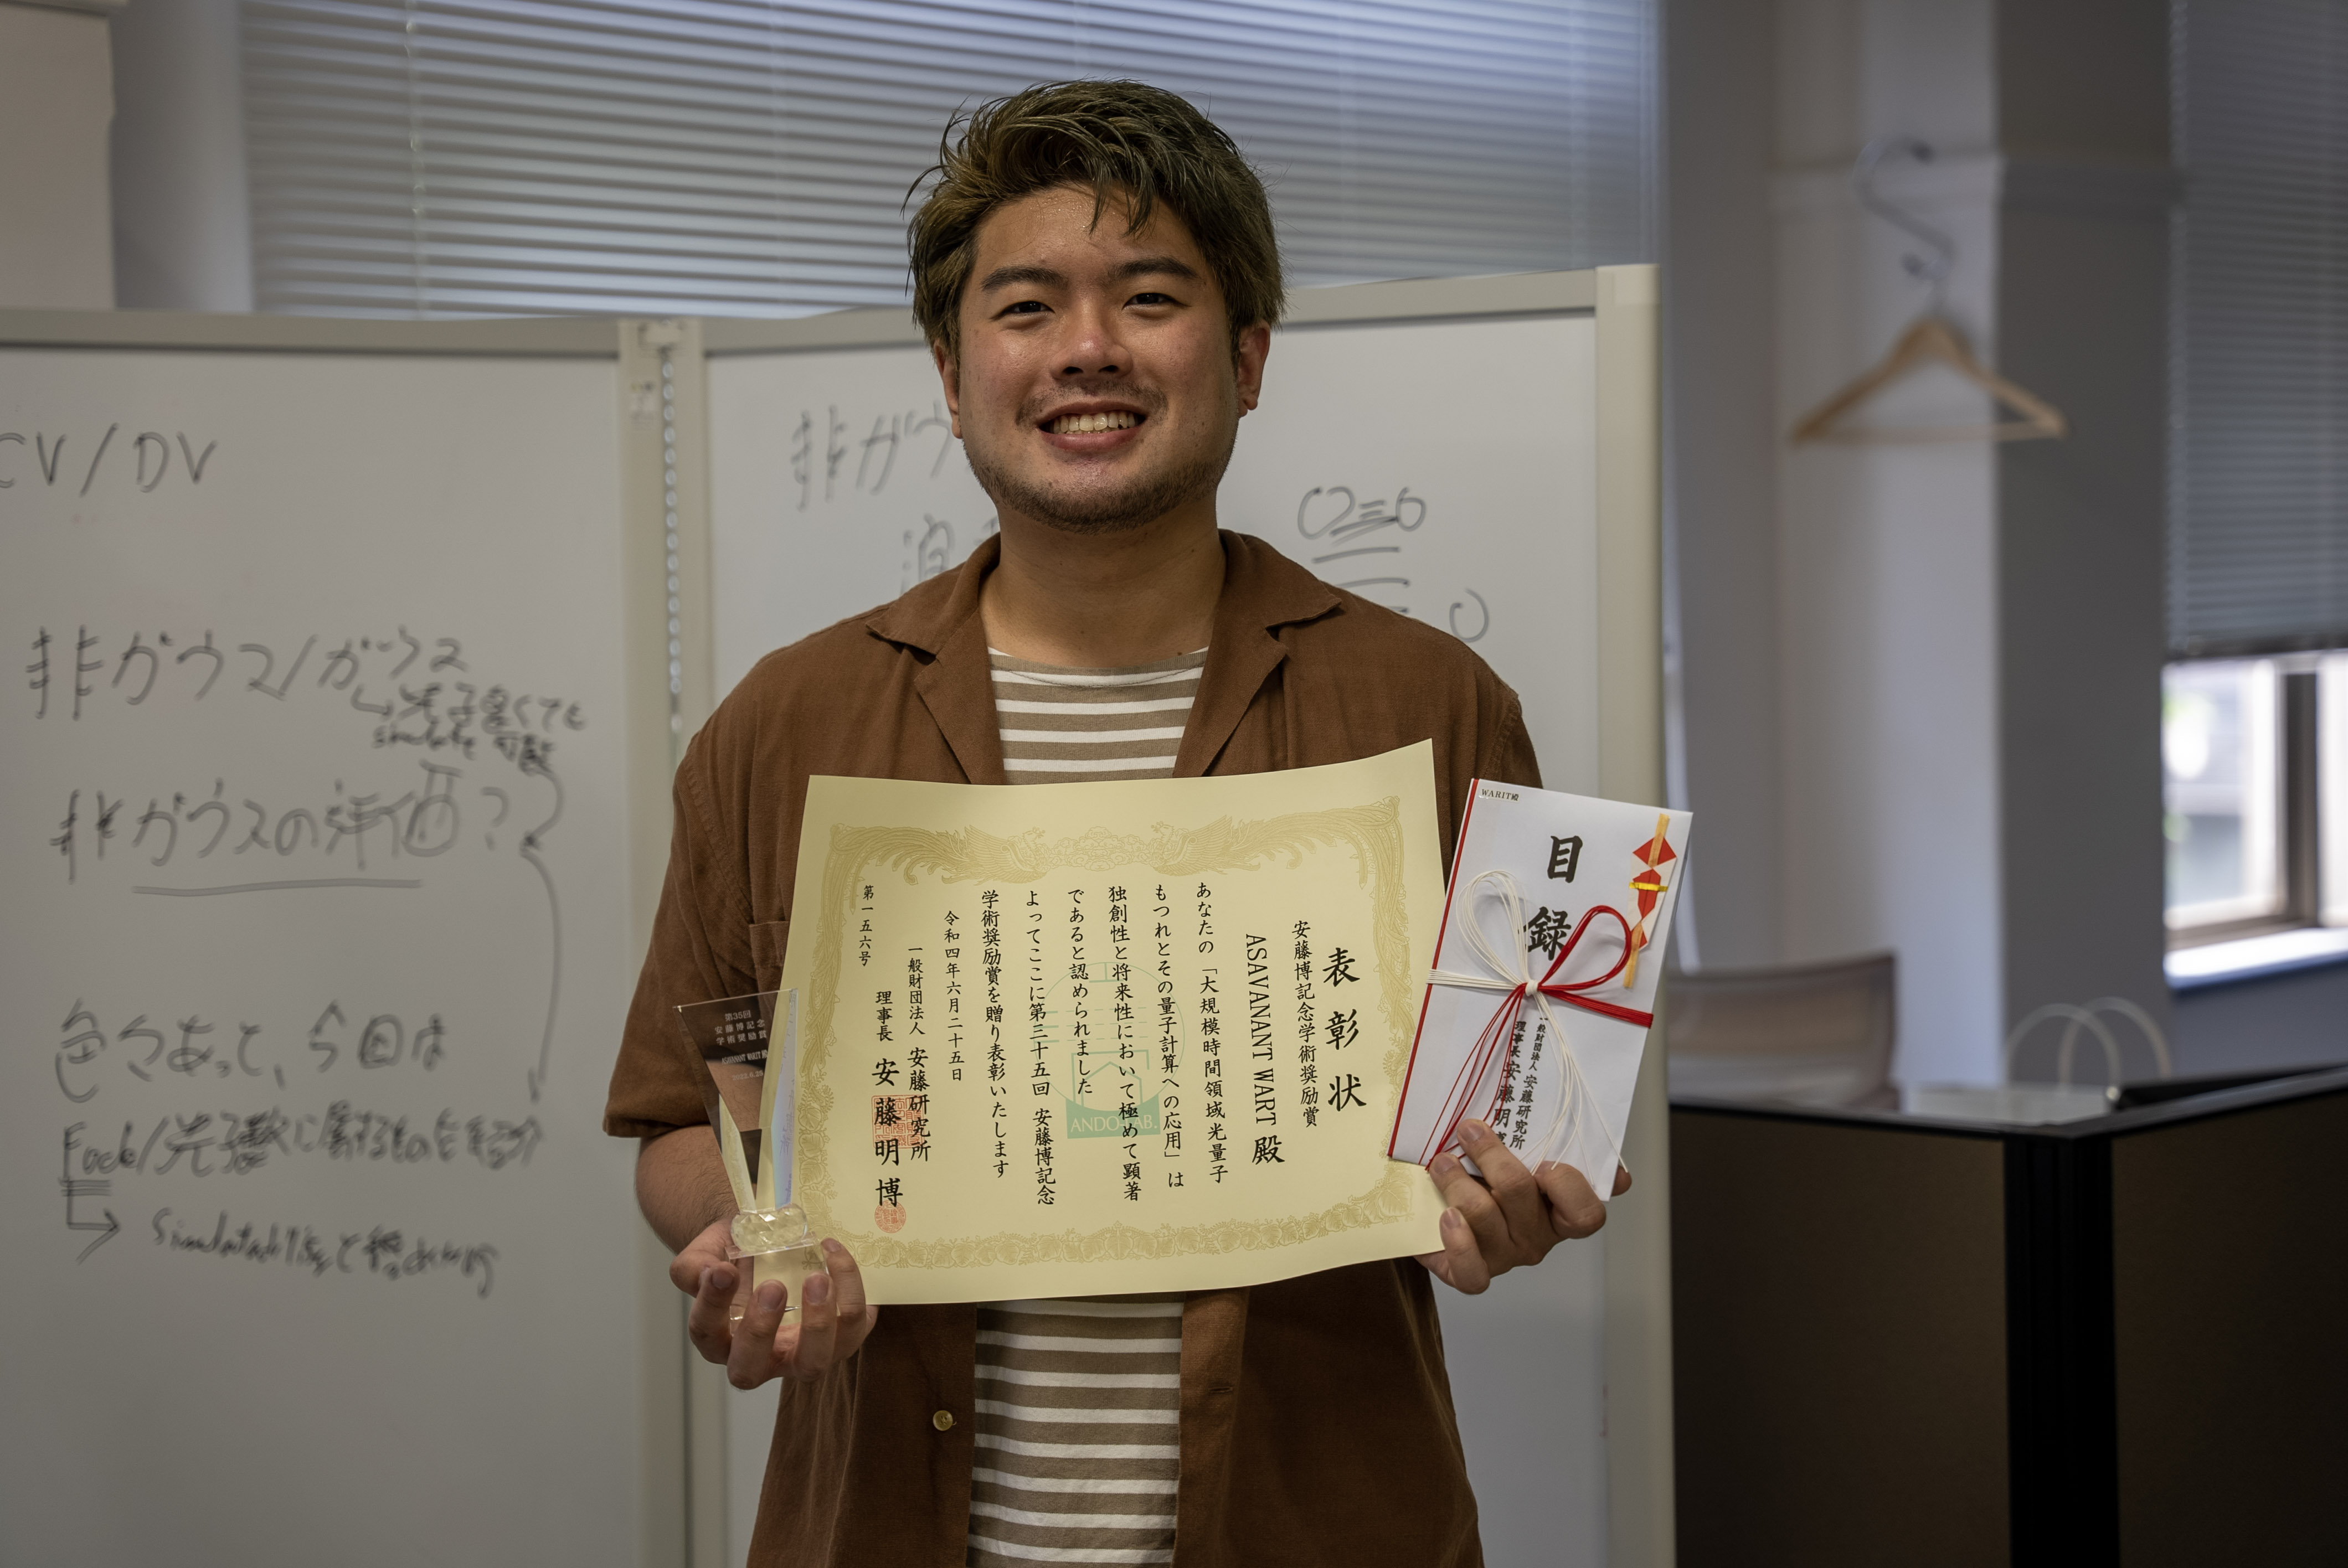 CV/DV
非ガウス/ガウス
simulate 可能
非ガウスの評価?
色々あって、今回は
Fock/光子数に属するものを
非ガウ
表彰状
安藤博記念学術奨励賞
ASAVANANT WART 殿
あなたの「大規模時間領域光量子
もつれとその量子計算への応用」は
独創性と将来性において極めて顕著
であると認められました
よってここに第三十五回 安藤博記念
学術奨励賞を贈り表彰いたします
令和四年六月二十五日
一般財団法人 安藤研究所
理事長 安藤明博
第一五六号
ANDO LAB.
第35回
安藤博記念
学術奨励賞
ASAVANANT WART 殿
WARIT殿
目録
一般財団法人 安藤研究所
理事長 安藤明